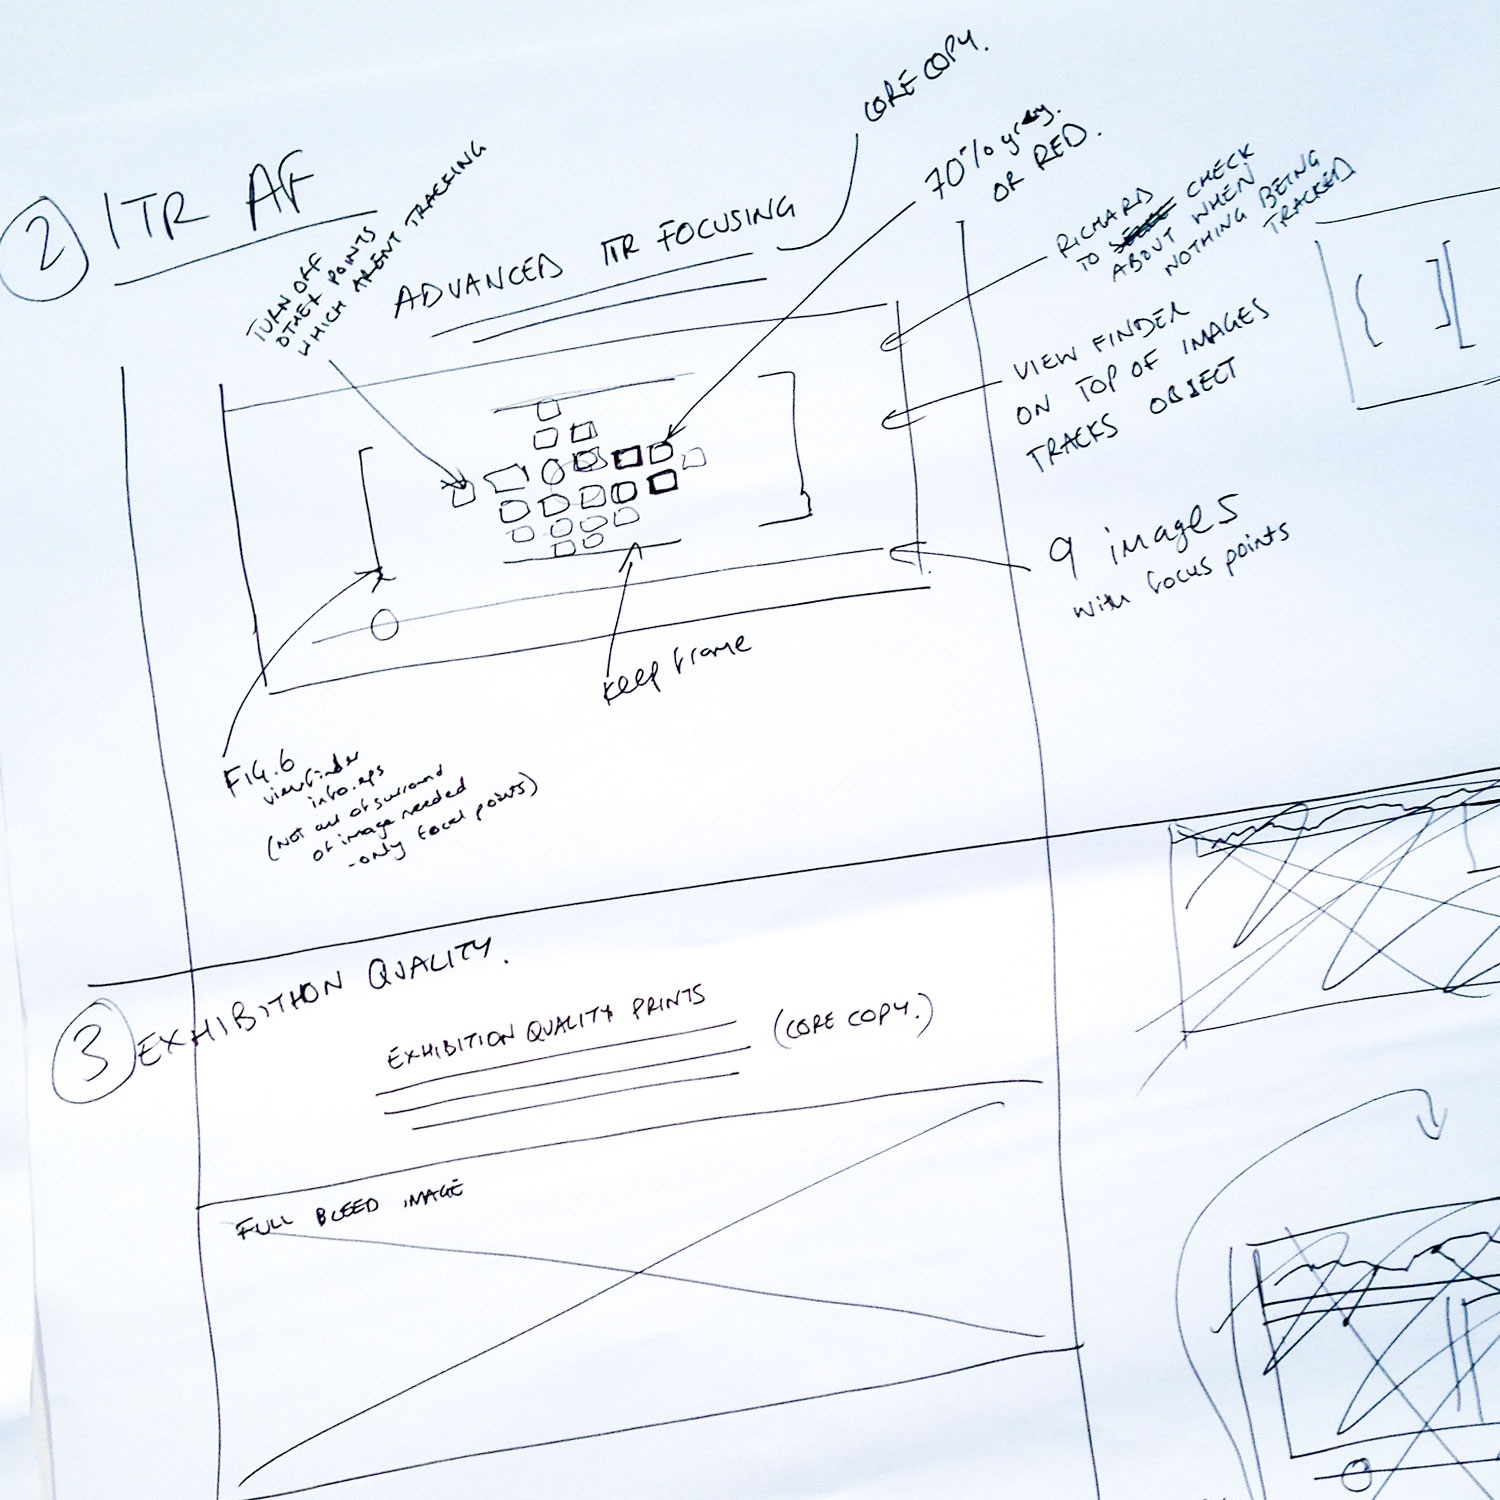 2 ITR AF
TURN OFF
OTHER POINTS
WHICH ARENT TRACKING
ADVANCED ITR FOCUSING
CORE COPY.
70% grey.
OR RED.
RICHARD
TO CHECK
ABOUT WHEN
NOTHING BEING
TRACKED
VIEW FINDER
ON TOP OF IMAGES
TRACKS OBJECT
9 images
with focus points
keep frame
FIG.6
viewfinder
info.eps
(NOT all of surround
of image needed
-only focal points)
3 EXHIBITION QUALITY.
EXHIBITION QUALITY PRINTS
(CORE COPY.)
FULL BLEED IMAGE